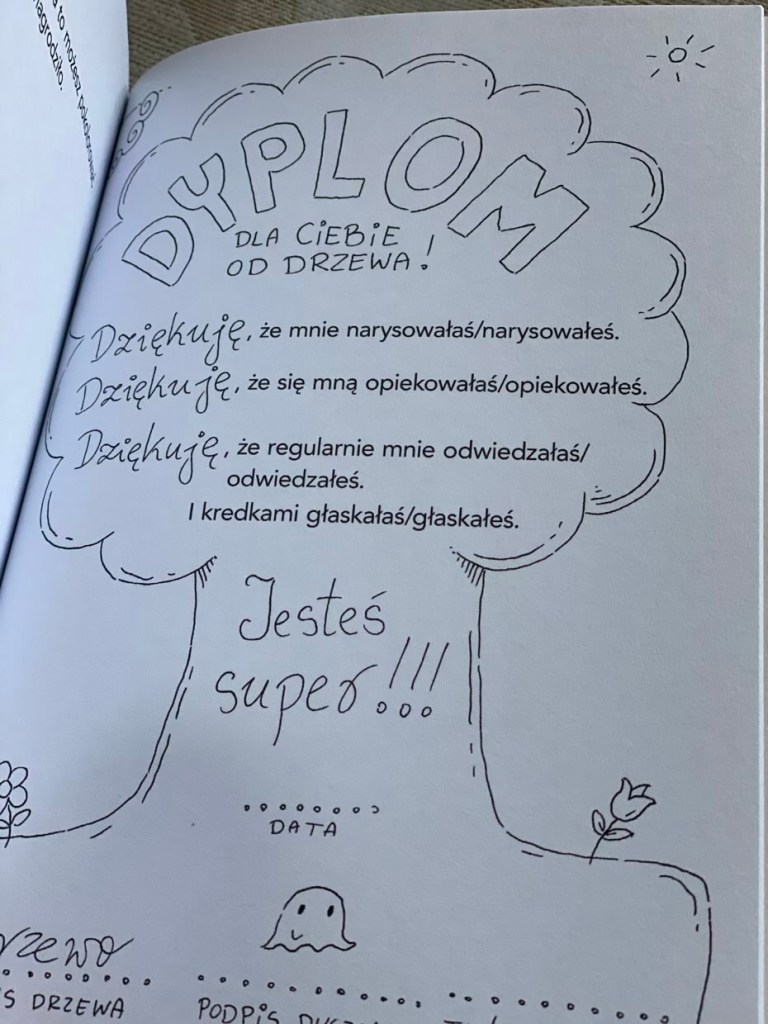 to możesz pokolorować.
nagrodziło.
DYPLOM
DLA CIEBIE
OD DRZEWA!
Dziękuję, że mnie narysowałaś/narysowałeś.
Dziękuję, że się mną opiekowałaś/opiekowałeś.
Dziękuję, że regularnie mnie odwiedzałaś/
odwiedzałeś.
I kredkami głaskałaś/głaskałeś.
Jesteś
super!!!
DATA
DRZEWA
PODPIS